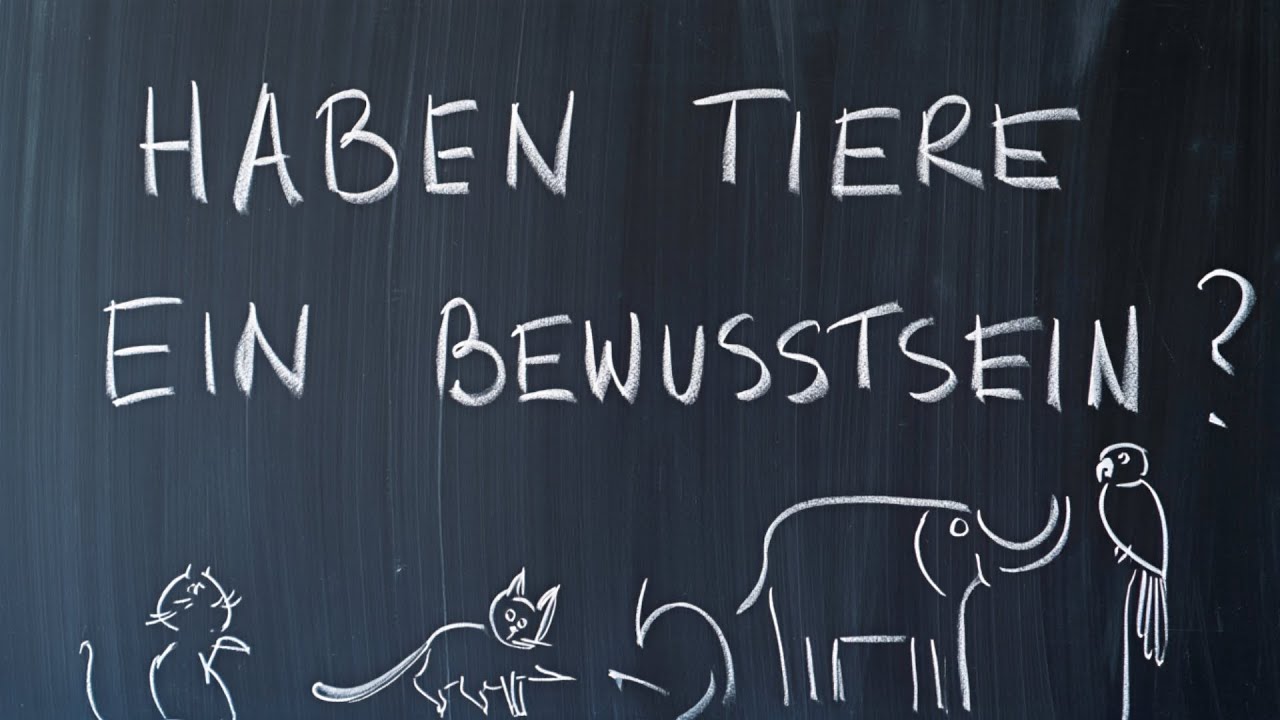 HABEN TIERE
EIN BEWUSSTSEIN?